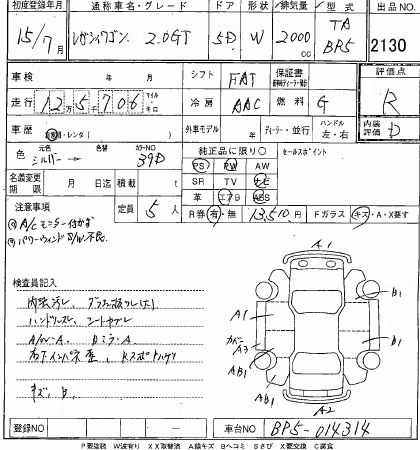 初度登録年月 通称車名・グレード ドア 形状 排気量 型式 出品NO.
15/7月 レガシィワゴン 2.0GT 5D W 2000cc TA BP5 2130
車検 年 月 シフト FAT 保証書 評価点
走行 125706 マイル・キロ 冷房 AAC 燃料 G R
車歴 レンタ( ) 外車モデル 年 ディーラー・並行 ハンドル 左・右 内装評価 D
色 元色 シルバー→ 色替 カラーNO 39D 純正品に限り○ セールスポイント
PS PW AW
名義変更期限 月 日迄 積載 t SR TV ナビ
革 エアB ABS
注意事項 定員 5人 R券 有・無 13,510円 Fガラス キズ・A・X要す
A/Cモニター付かず
パワーウィンドS/W不良
A1
検査員記入
内装汚レ
ハンドルスレ
A1 B1
カバー A3
A/W・A
AB1 AB1 B1
キズ、B
A2
登録NO 車台NO BP5-014314
P要塗装 W波有り XX取替済 A線キズ Bヘコミ Sさび X要交換 C腐食